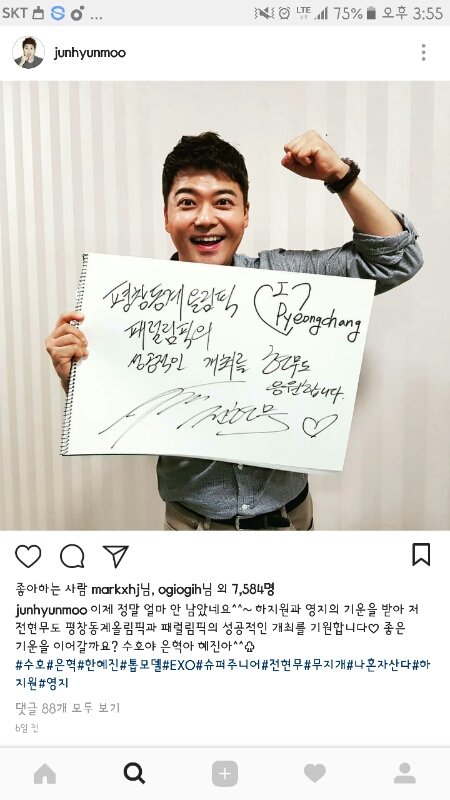 SKT
...
LTE 75% 오후 3:55
junhyunmoo
평창동계올림픽
패럴림픽의
성공적인 개최를 현무도
응원합니다.
전현무
I
Pyeongchang
좋아하는 사람 markxhj님, ogiogih님 외 7,584명
junhyunmoo 이제 정말 얼마 안 남았네요^^~ 하지원과 영지의 기운을 받아 저
전현무도 평창동계올림픽과 패럴림픽의 성공적인 개최를 기원합니다♡ 좋은
기운을 이어갈까요? 수호야 은혁아 혜진아^^♧
#수호#은혁#한혜진#톱모델#EXO#슈퍼주니어#전현무#무지개#나혼자산다#하
지원#영지
댓글 88개 모두 보기
6일 전